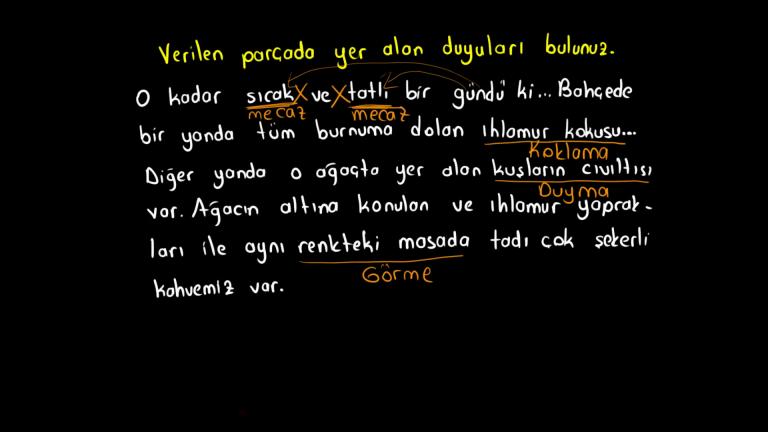 Verilen parçada yer alan duyuları bulunuz.
O kadar sıcak X ve X tatlı bir gündü ki... Bahçede
mecaz mecaz
bir yanda tüm burnuma dolan ıhlamur kokusu...
Koklama
Diğer yanda o ağaçta yer alan kuşların cıvıltısı
Duyma
var. Ağacın altına konulan ve ıhlamur yaprak-
ları ile aynı renkteki masada tadı çok şekerli
Görme
kahvemiz var.